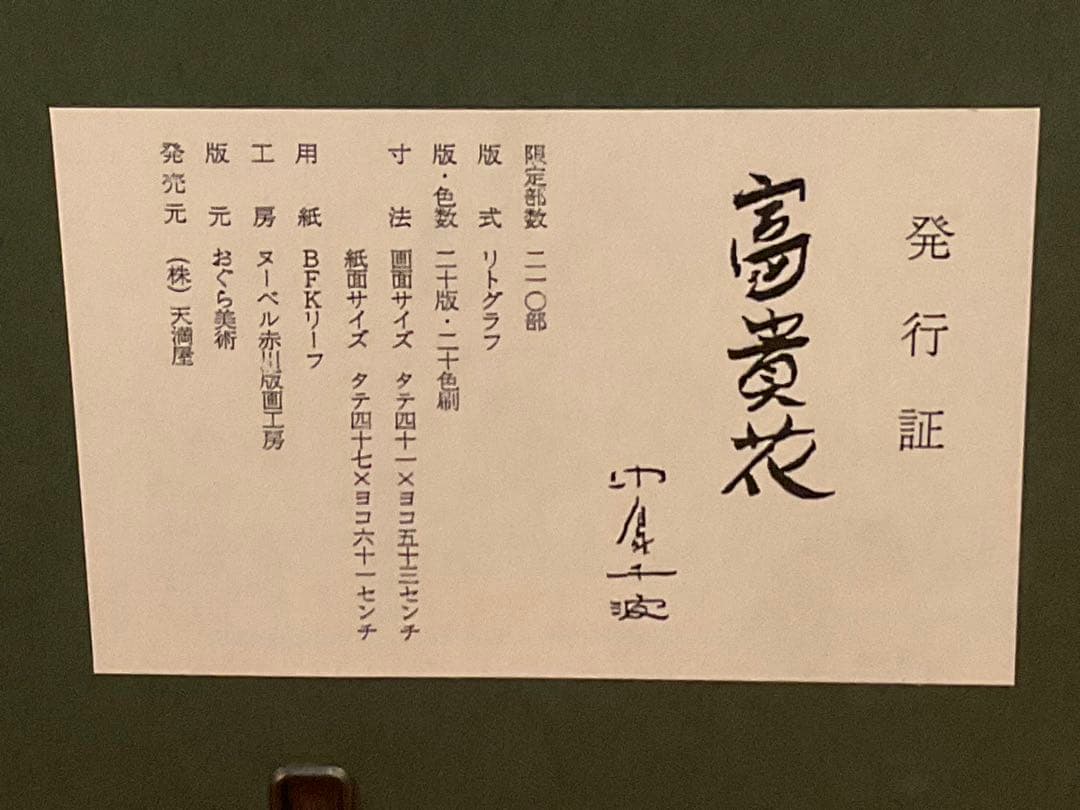 発行証
富貴花
中島千波
限定部数 二一〇部
版式 リトグラフ
版・色数 二十版・二十色刷
寸法 画面サイズ タテ四十一×ヨコ五十三センチ
紙面サイズ タテ四十七×ヨコ六十一センチ
用紙 BFKリーフ
工房 ヌーベル赤川版画工房
版元 おぐら美術
発売元 (株)天満屋